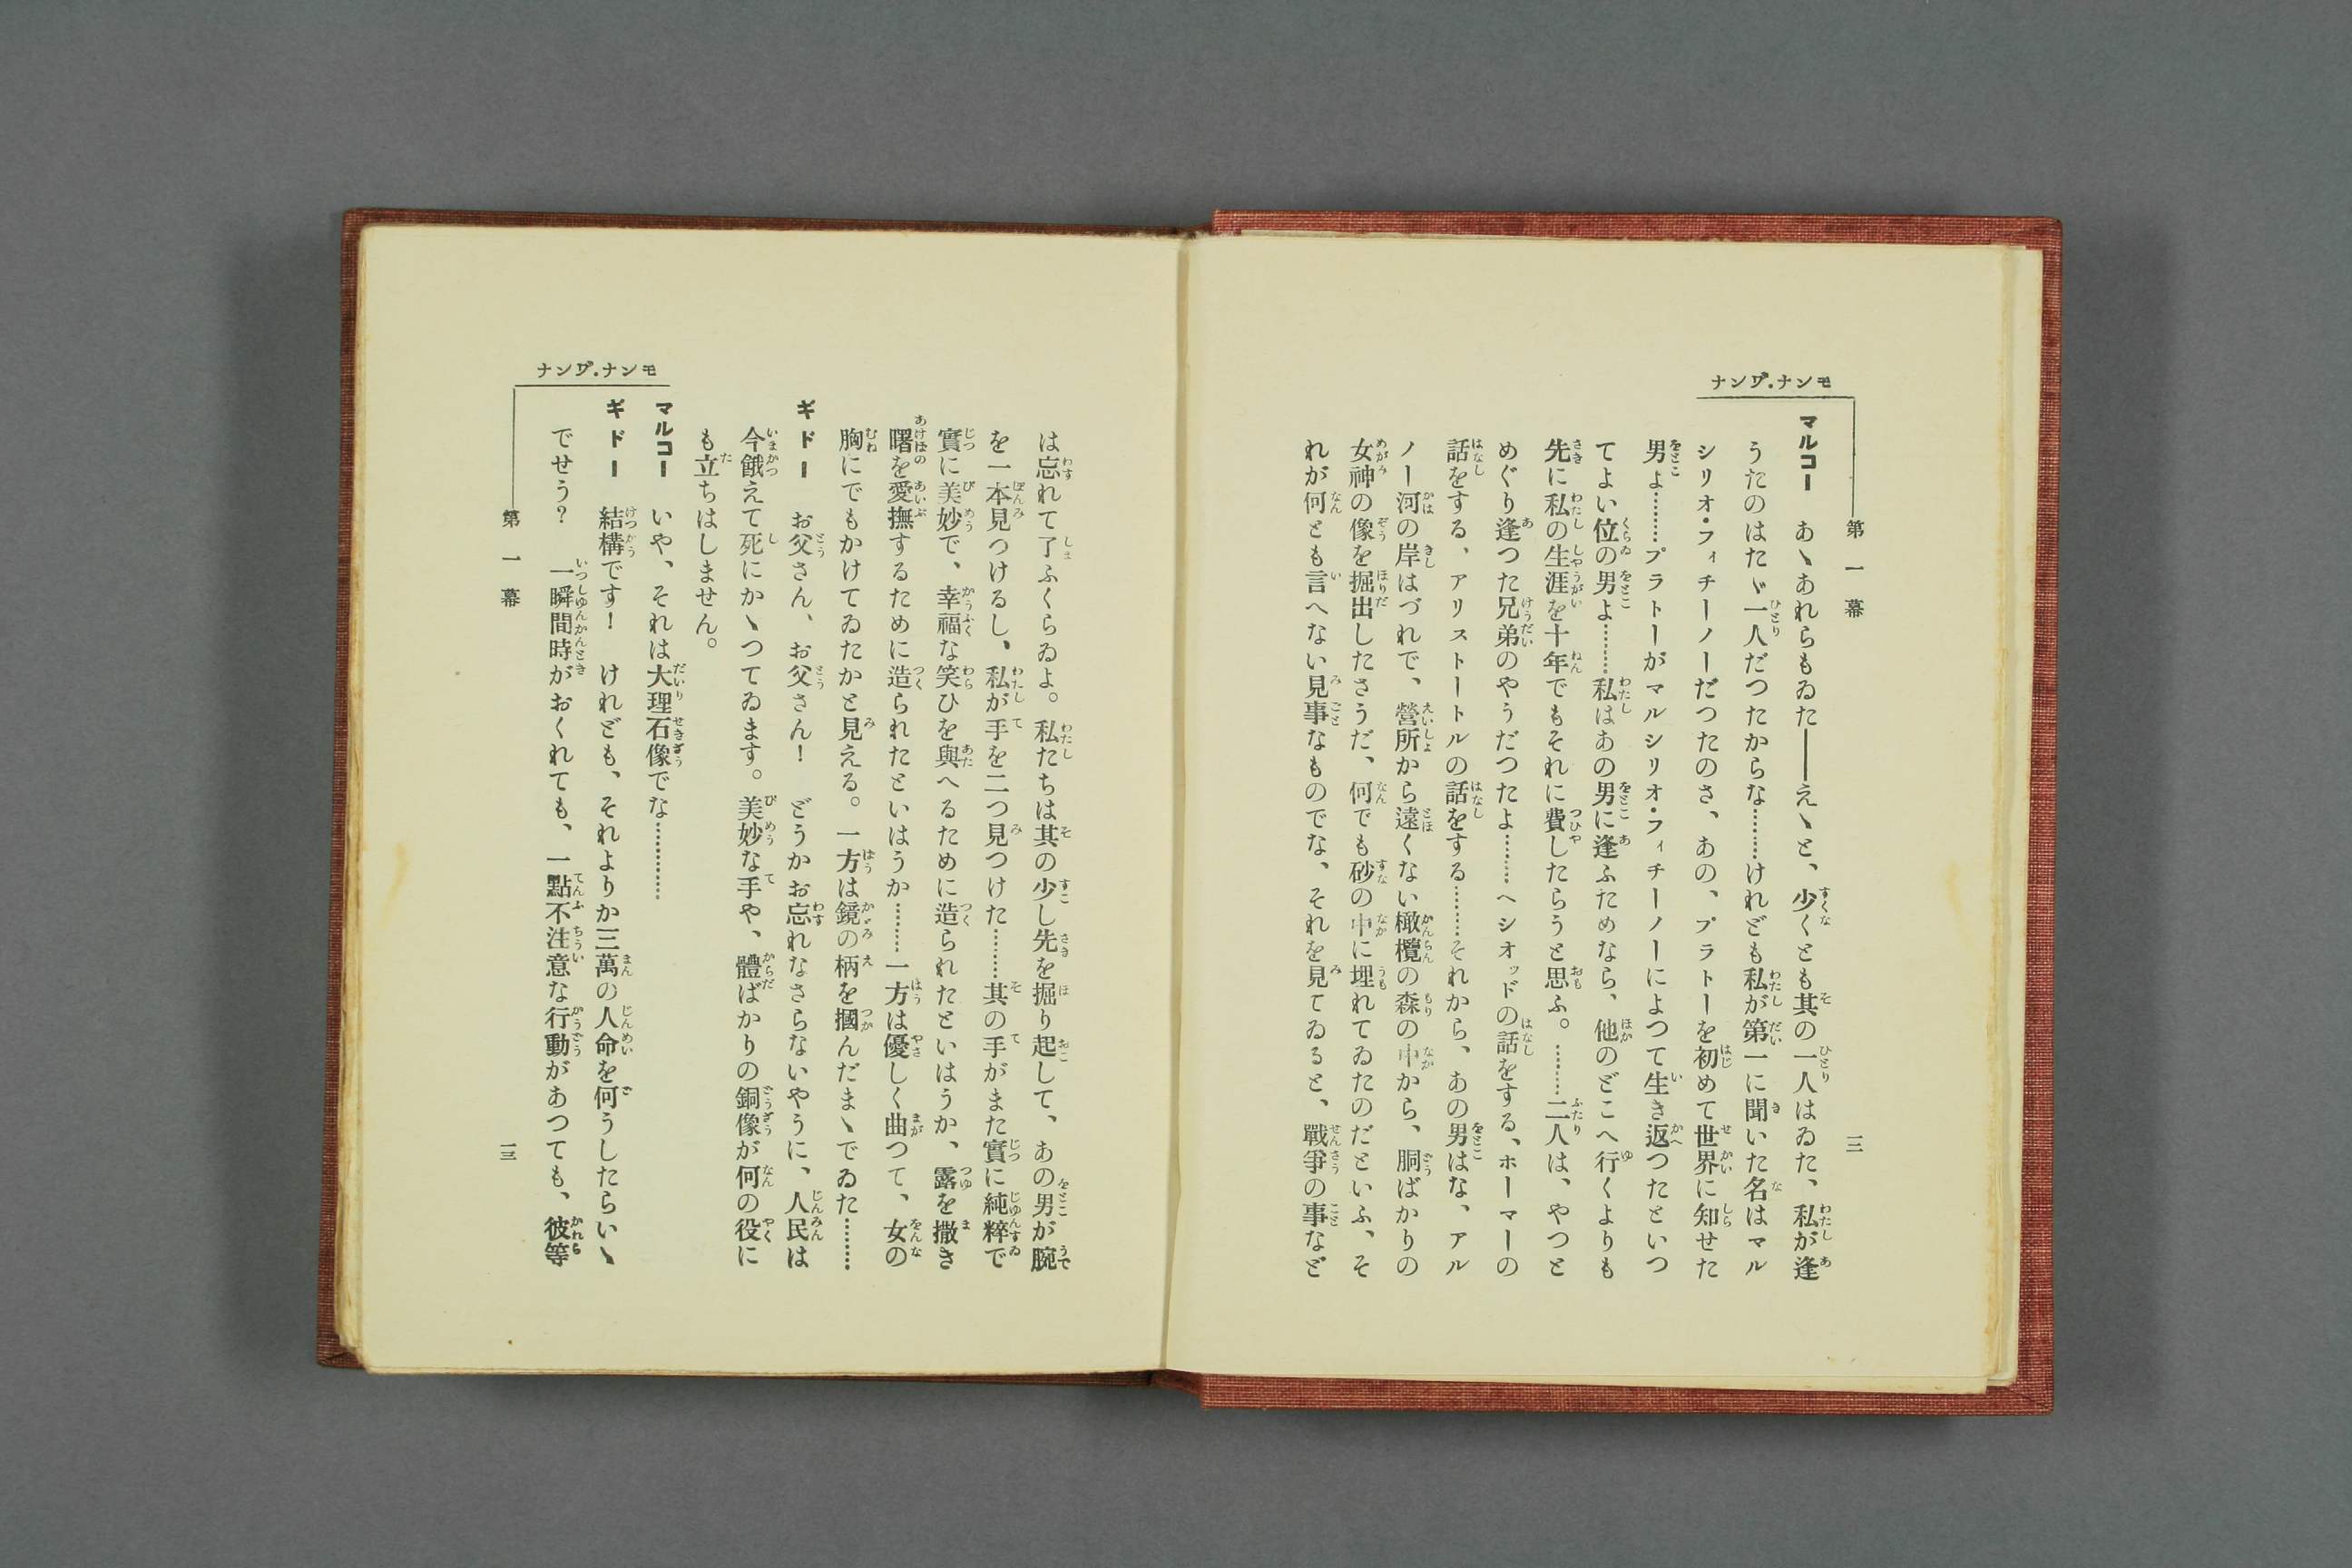 モンナ・ヷンナ
第一幕
一二
マルコー　あゝあれらもゐた――えゝと、少くとも其の一人はゐた、私が逢
うたのはたゞ一人だつたからな………けれども私が第一に聞いた名はマル
シリオ・フィチーノーだつたのさ、あの、プラトーを初めて世界に知らせた
男よ………プラトーがマルシリオ・フィチーノーによつて生き返つたといつ
てよい位の男よ………私はあの男に逢ふためなら、他のどこへ行くよりも
先に私の生涯を十年でもそれに費したらうと思ふ。………二人は、やつと
めぐり逢つた兄弟のやうだつたよ………ヘシオッドの話をする、ホーマーの
話をする、アリストートルの話をする………それから、あの男はな、アル
ノー河の岸はづれで、營所から遠くない橄欖の森の中から、胴ばかりの
女神の像を掘出したさうだ、何でも砂の中に埋れてゐたのだといふ、そ
れが何とも言へない見事なものでな、それを見てゐると、戰爭の事など
は忘れて了ふくらゐよ。私たちは其の少し先を掘り起して、あの男が腕
を一本見つけるし、私が手を二つ見つけた………其の手がまた實に純粹で
實に美妙で、幸福な笑ひを與へるために造られたといはうか、露を撒き
曙を愛撫するために造られたといはうか………一方は優しく曲つて、女の
胸にでもかけてゐたかと見える。一方は鏡の柄を摑んだまゝでゐた………
ギドー　お父さん、お父さん！　どうかお忘れなさらないやうに、人民は
今餓えて死にかゝつてゐます。美妙な手や、體ばかりの銅像が何の役に
も立ちはしません。
マルコー　いや、それは大理石像でな…………
ギドー　結構です！　けれども、それよりか三萬の人命を何うしたらいゝ
でせう？　一瞬間時がおくれても、一點不注意な行動があつても、彼等
モンナ・ヷンナ
第一幕
一三